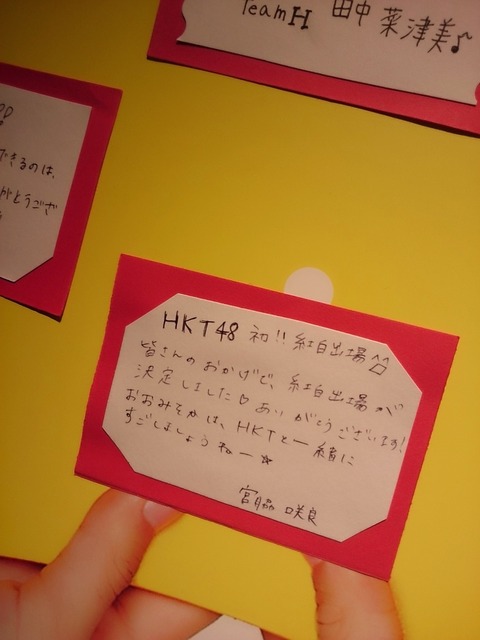 TeamH 田中 菜津美♪
できるのは、
がとうござ
HKT48 初!! 紅白出場
皆さんのおかげで、紅白出場が
決定しました♡ありがとうございます!
おおみそかは、HKTと一緒に
すごしましょうねー☆
宮脇 咲良